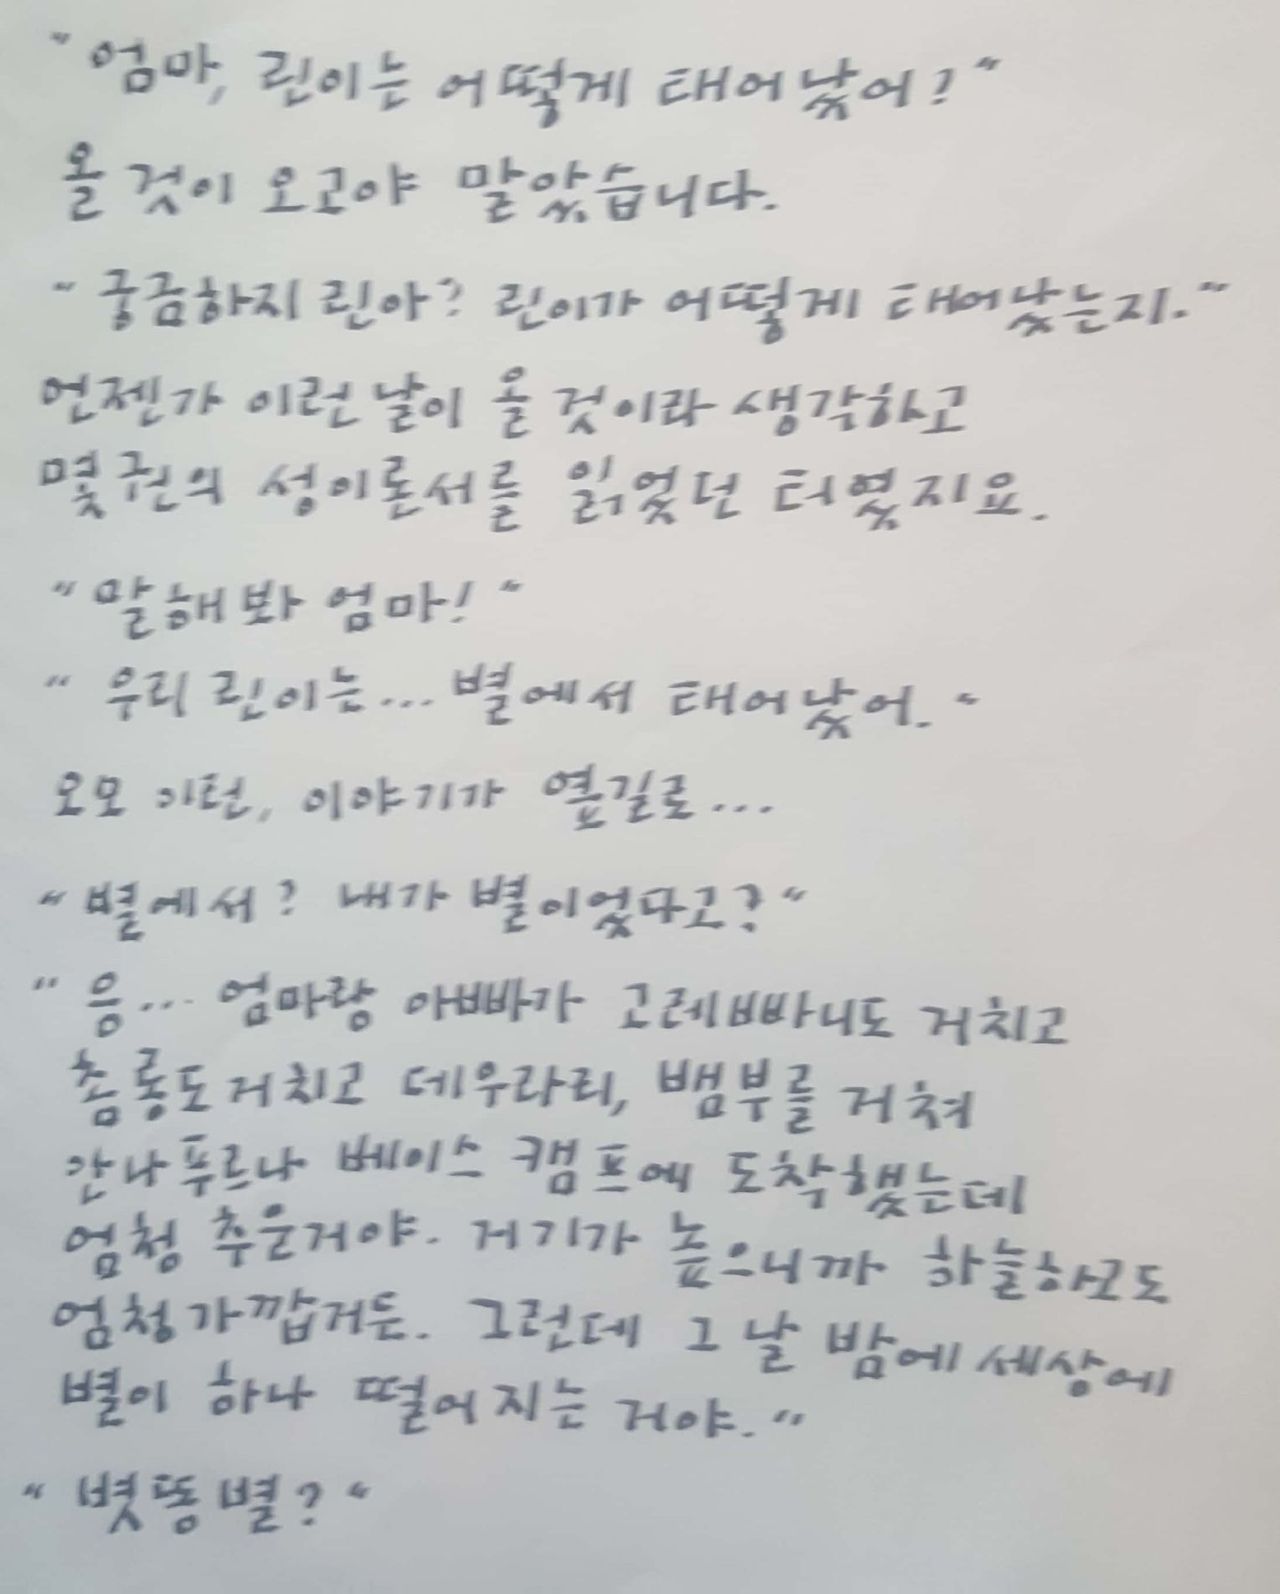 "엄마, 린이는 어떻게 태어났어?"
올 것이 오고야 말았습니다.
"궁금하지 린아? 린이가 어떻게 태어났는지."
언젠가 이런 날이 올 것이라 생각하고
몇 권의 성이론서를 읽었던 터였지요.
"말해봐 엄마!"
"우리 린이는... 별에서 태어났어."
오모 이런, 이야기가 옆길로...
"별에서? 내가 별이었다고?"
"응... 엄마랑 아빠가 고레빠니도 거치고
촘롱도 거치고 데우랄리, 뱀부를 거쳐
안나푸르나 베이스 캠프에 도착했는데
엄청 추운거야. 거기가 높으니까 하늘하고도
엄청 가깝거든. 그런데 그 날 밤에 세상에
별이 하나 떨어지는 거야."
"볏똥별?"